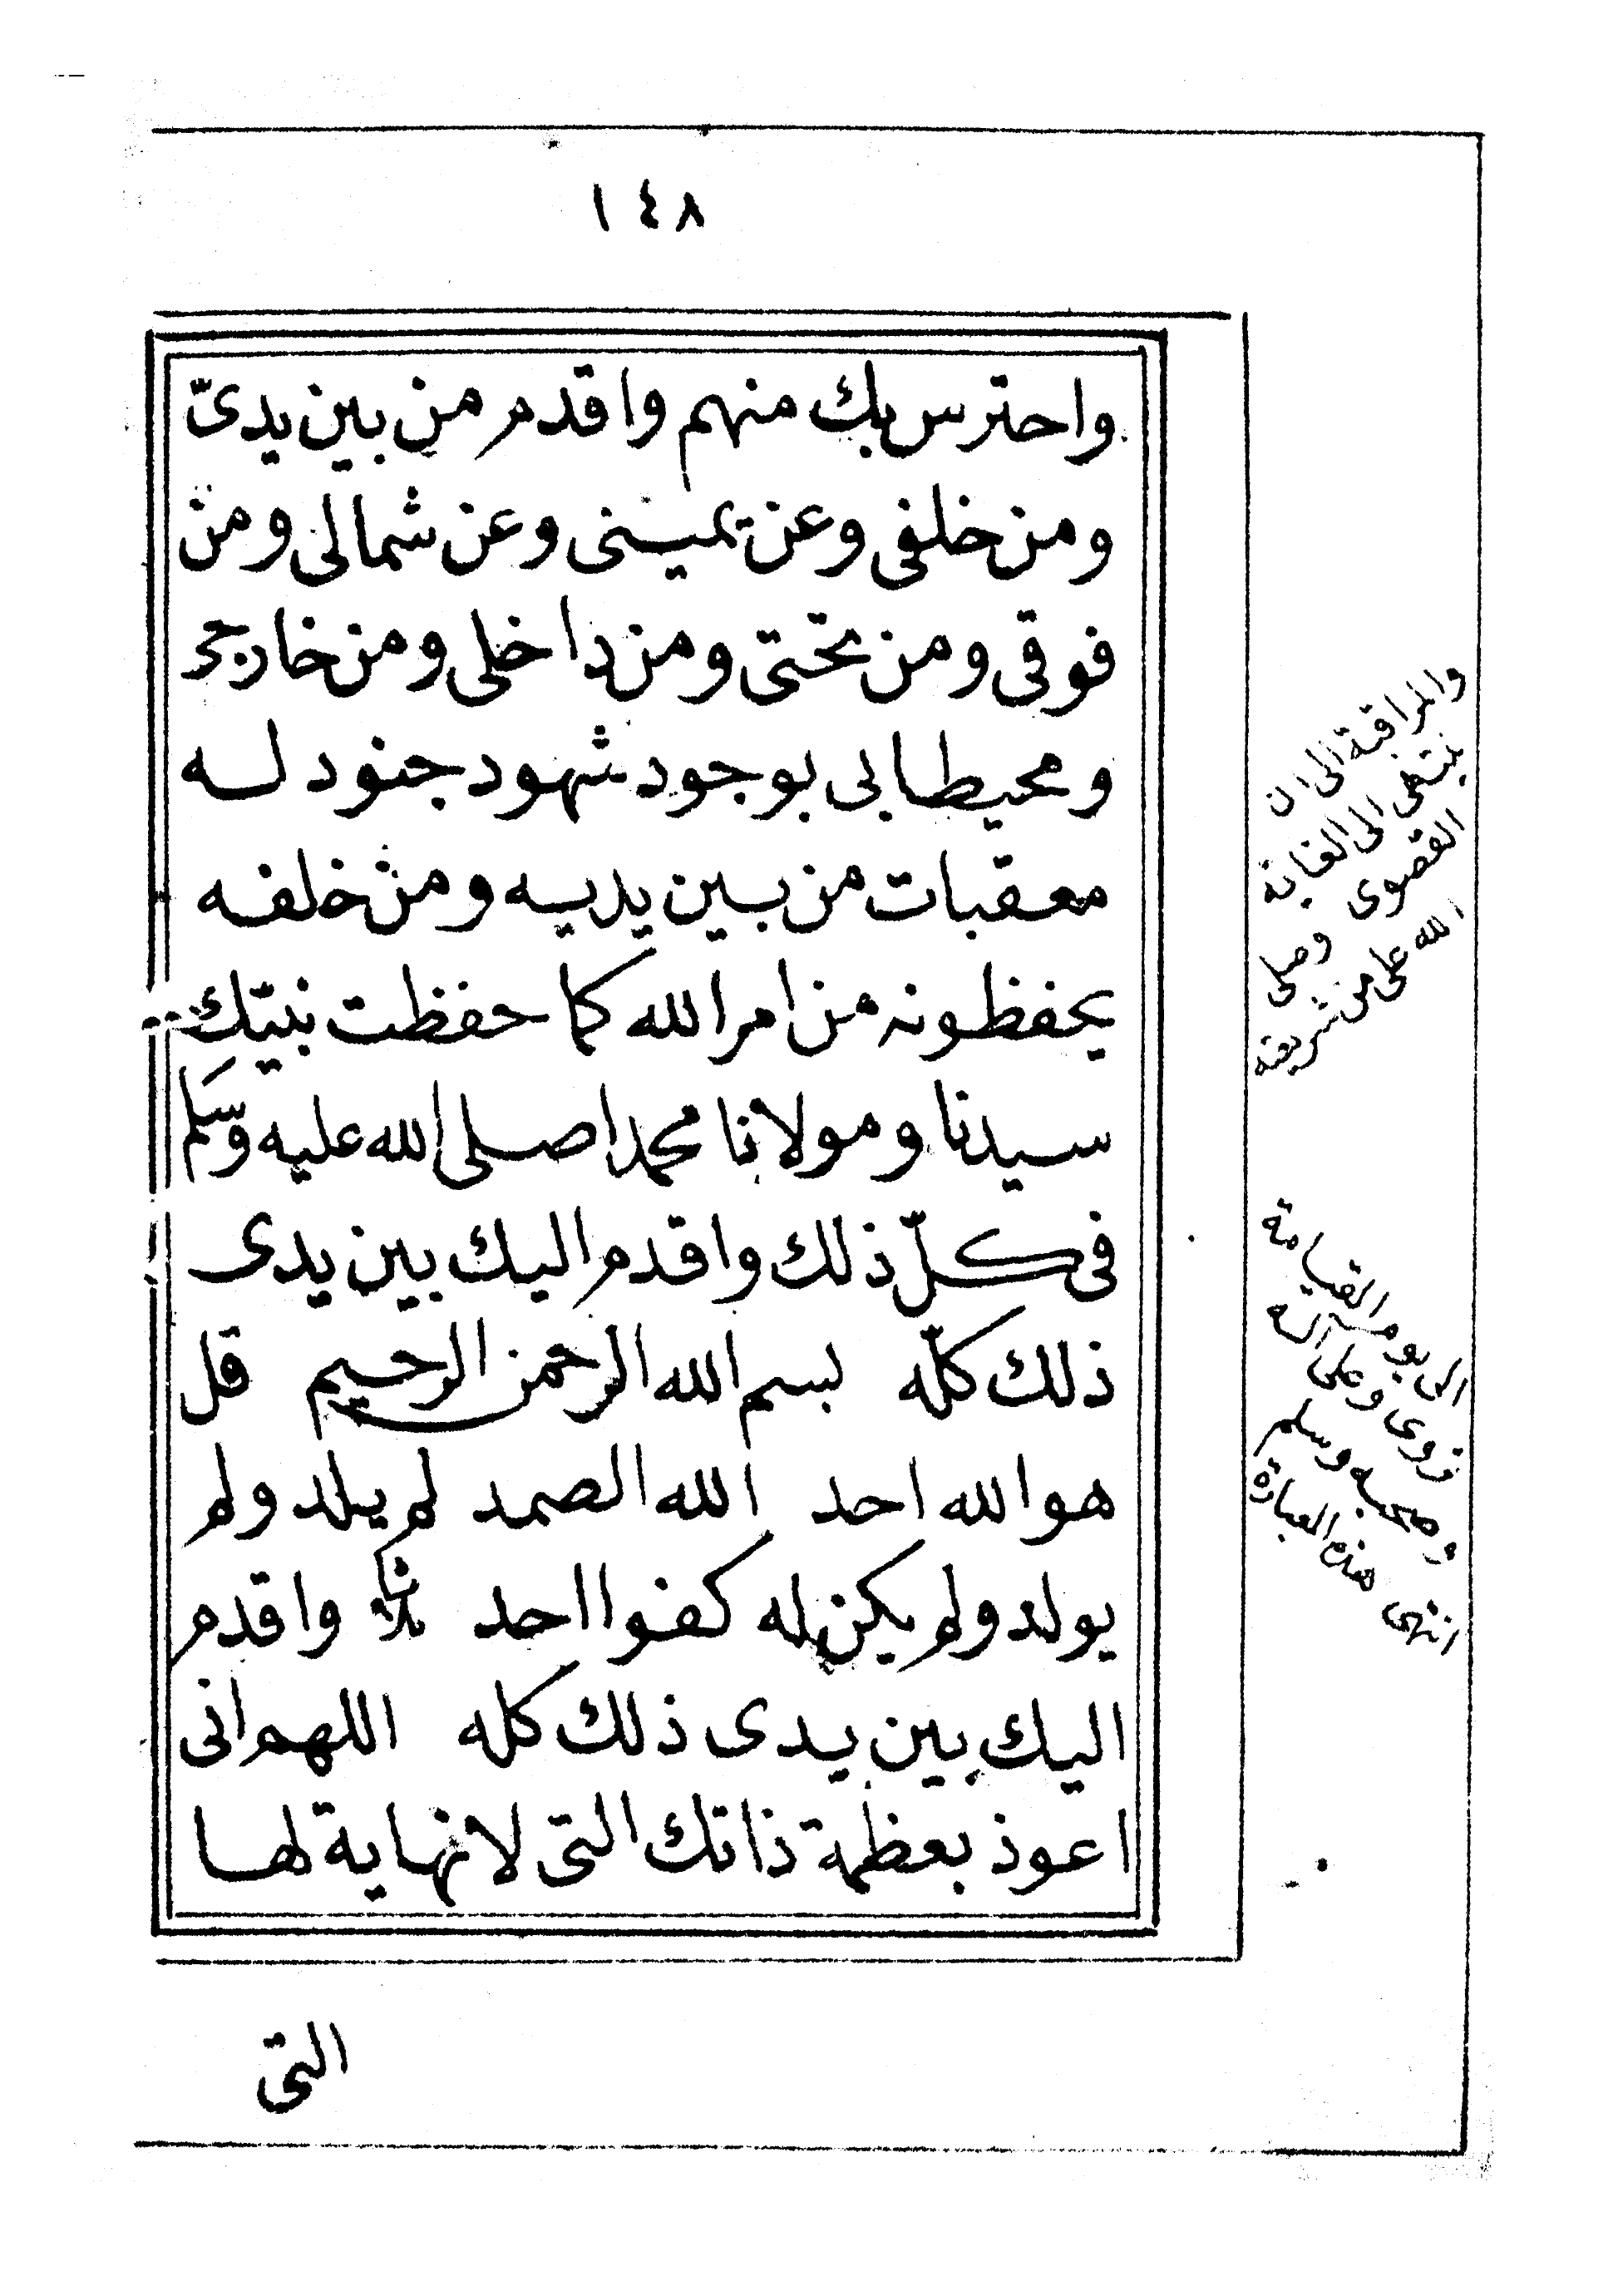 ١٤٨
واحترس بك منهم واقدم من بين يدىّ
ومن خلفى وعن يمينى وعن شمالى ومن
فوقى ومن تحتى ومن داخلى ومن خارجى
ومحيطا بى بوجود شهود جنود له
معقبات من بين يديه ومن خلفه
يحفظونه من امر الله كما حفظت نبيّك
سيدنا ومولانا محمدا صلى الله عليه وسلم
فى كلّ ذلك واقدم اليك بين يدى
ذلك كلّه بسم الله الرحمن الرحيم قل
هو الله احد الله الصمد لم يلد ولم
يولد ولم يكن له كفوا احد ثلاثا واقدم
اليك بين يدى ذلك كله اللهم انى
اعوذ بعظمة ذاتك التى لا نهاية لها
والمراقبة الى ان
ينتهى الى الغاية
القصوى وصلى
الله على من شريعته
الى يوم القيامة
تروى وعلى آله
وصحبه وسلم
انتهى هذه العبارة
التى